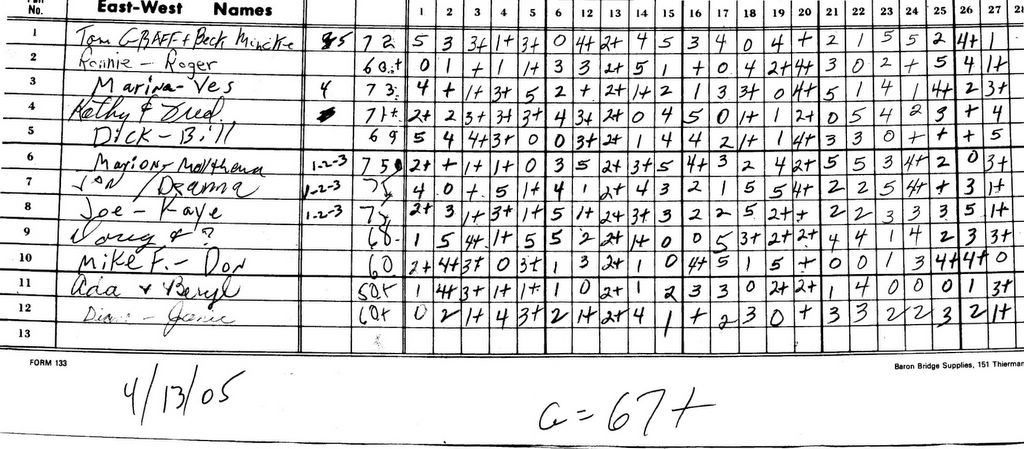 No. East-West Names 1 2 3 4 5 6 12 13 14 15 16 17 18 19 20 21 22 23 24 25 26 27
1 Tom GRAFF + Beck 72 5 3 3+ 1+ 3+ 0 4+ 2+ 4 5 3 4 0 4 + 2 1 5 5 2 4+ 1
2 Ronnie - Roger 60+ 0 1 + 1 1+ 3 3 2+ 5 1 + 0 4 2+ 4+ 3 0 2 + 5 4 1+
3 Marina-Ves 4 73 4 + 1+ 3+ 5 2 + 2+ 1+ 2 1 3 3+ 0 4+ 5 1 4 1 4+ 2 3+
4 Kathy & Fred 71+ 2+ 2 3+ 3+ 3+ 4 3+ 2+ 0 4 5 0 1+ 1 2+ 0 5 4 2 3 + 4
5 Dick - Bill 69 5 4 4+ 3+ 0 0 3+ 2+ 1 4 4 2 1+ 1 4+ 3 3 0 + + + 5
6 Marion 1-2-3 75 2+ + 1+ 1+ 0 3 5 2+ 3+ 5 4+ 3 2 4 2+ 5 5 3 4+ 2 0 3+
7 Jan / Deanna 1-2-3 75 4 0 + 5 1+ 4 1 2+ 4 3 2 1 5 5 4+ 2 2 5 4+ + 3 1+
8 Joe - Kaye 1-2-3 2+ 3 1+ 3+ 1+ 5 1+ 2+ 3+ 3 2 2 5 2+ + 2 2 3 3 3 5 1+
9 Doug & ? 68 1 5 4+ 1+ 5 5 2 2+ 1+ 0 0 5 3+ 2+ 2+ 4 4 1 4 2 3 3+
10 Mike F. - Don 60 2+ 4+ 3+ 0 3+ 1 3 2+ 1 0 4+ 5 1 5 + 0 0 1 3 4+ 4+ 0
11 Ada & Beryl 50+ 1 4+ 3+ 1+ 1+ 1 0 2+ 1 2 3 3 0 2+ 2+ 1 4 0 0 0 1 3+
12 60+ 0 2 1+ 4 3+ 2 1+ 2+ 4 1 + 2 3 0 + 3 3 2 2 3 2 1+
13
FORM 133 Baron Bridge Supplies, 151
4/13/05
a = 67+